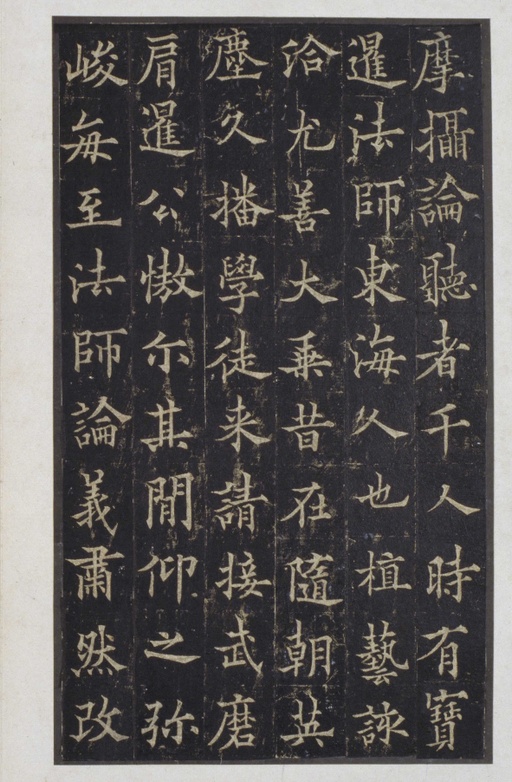 摩攝論聽者千人時有寶
暹法師東海人也植藝該
洽尤善大乗昔在隨朝英
塵久播學徒来請接武磨
肩暹公慠尓其間仰之弥
峻每至法師論義肅然改